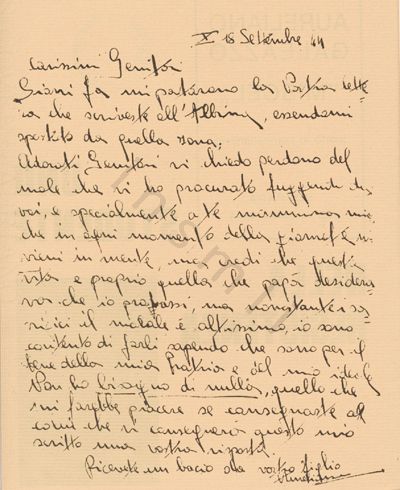 X 18 Settembre 44
Carissimi Genitori
Giorni fa mi portarono la Vostra lette-
ra che scriveste all'Albina, essendomi
spostato da quella zona,
Adorati Genitori vi chiedo perdono del
male che vi ho procurato fuggendo da
voi, e specialmente a te mamma mia
che in ogni momento della giornata mi
vieni in mente, ma credi che questa
vita e proprio quella che papà desidera-
va che io facessi, ma nonostante i sa-
crifici il morale è altissimo, io sono
contento di farli sapendo che sono per il
bene della mia Patria e del mio ideale
Non ho bisogno di nulla, quello che
mi farebbe piacere se consegnaste al
colui che vi consegnerà questo mio
scritto una vostra risposta.
Ricevete un bacio da vostro figlio